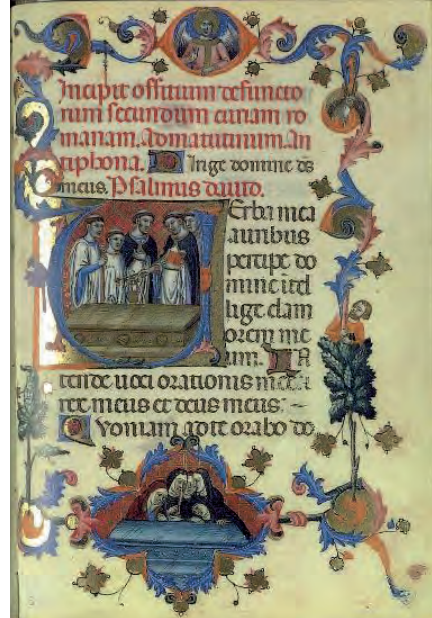 Incipit offitium defuncto
rum secundum curiam ro
manam. Ad matutinum. An
tiphona. Dirige domine ds
meus. Psalmus david.
Verba mea
auribus
percipe do
mine itel
lige clam
orem me
um. In
tende voci orationis mee
rex meus et deus meus.
Quoniam ad te orabo do